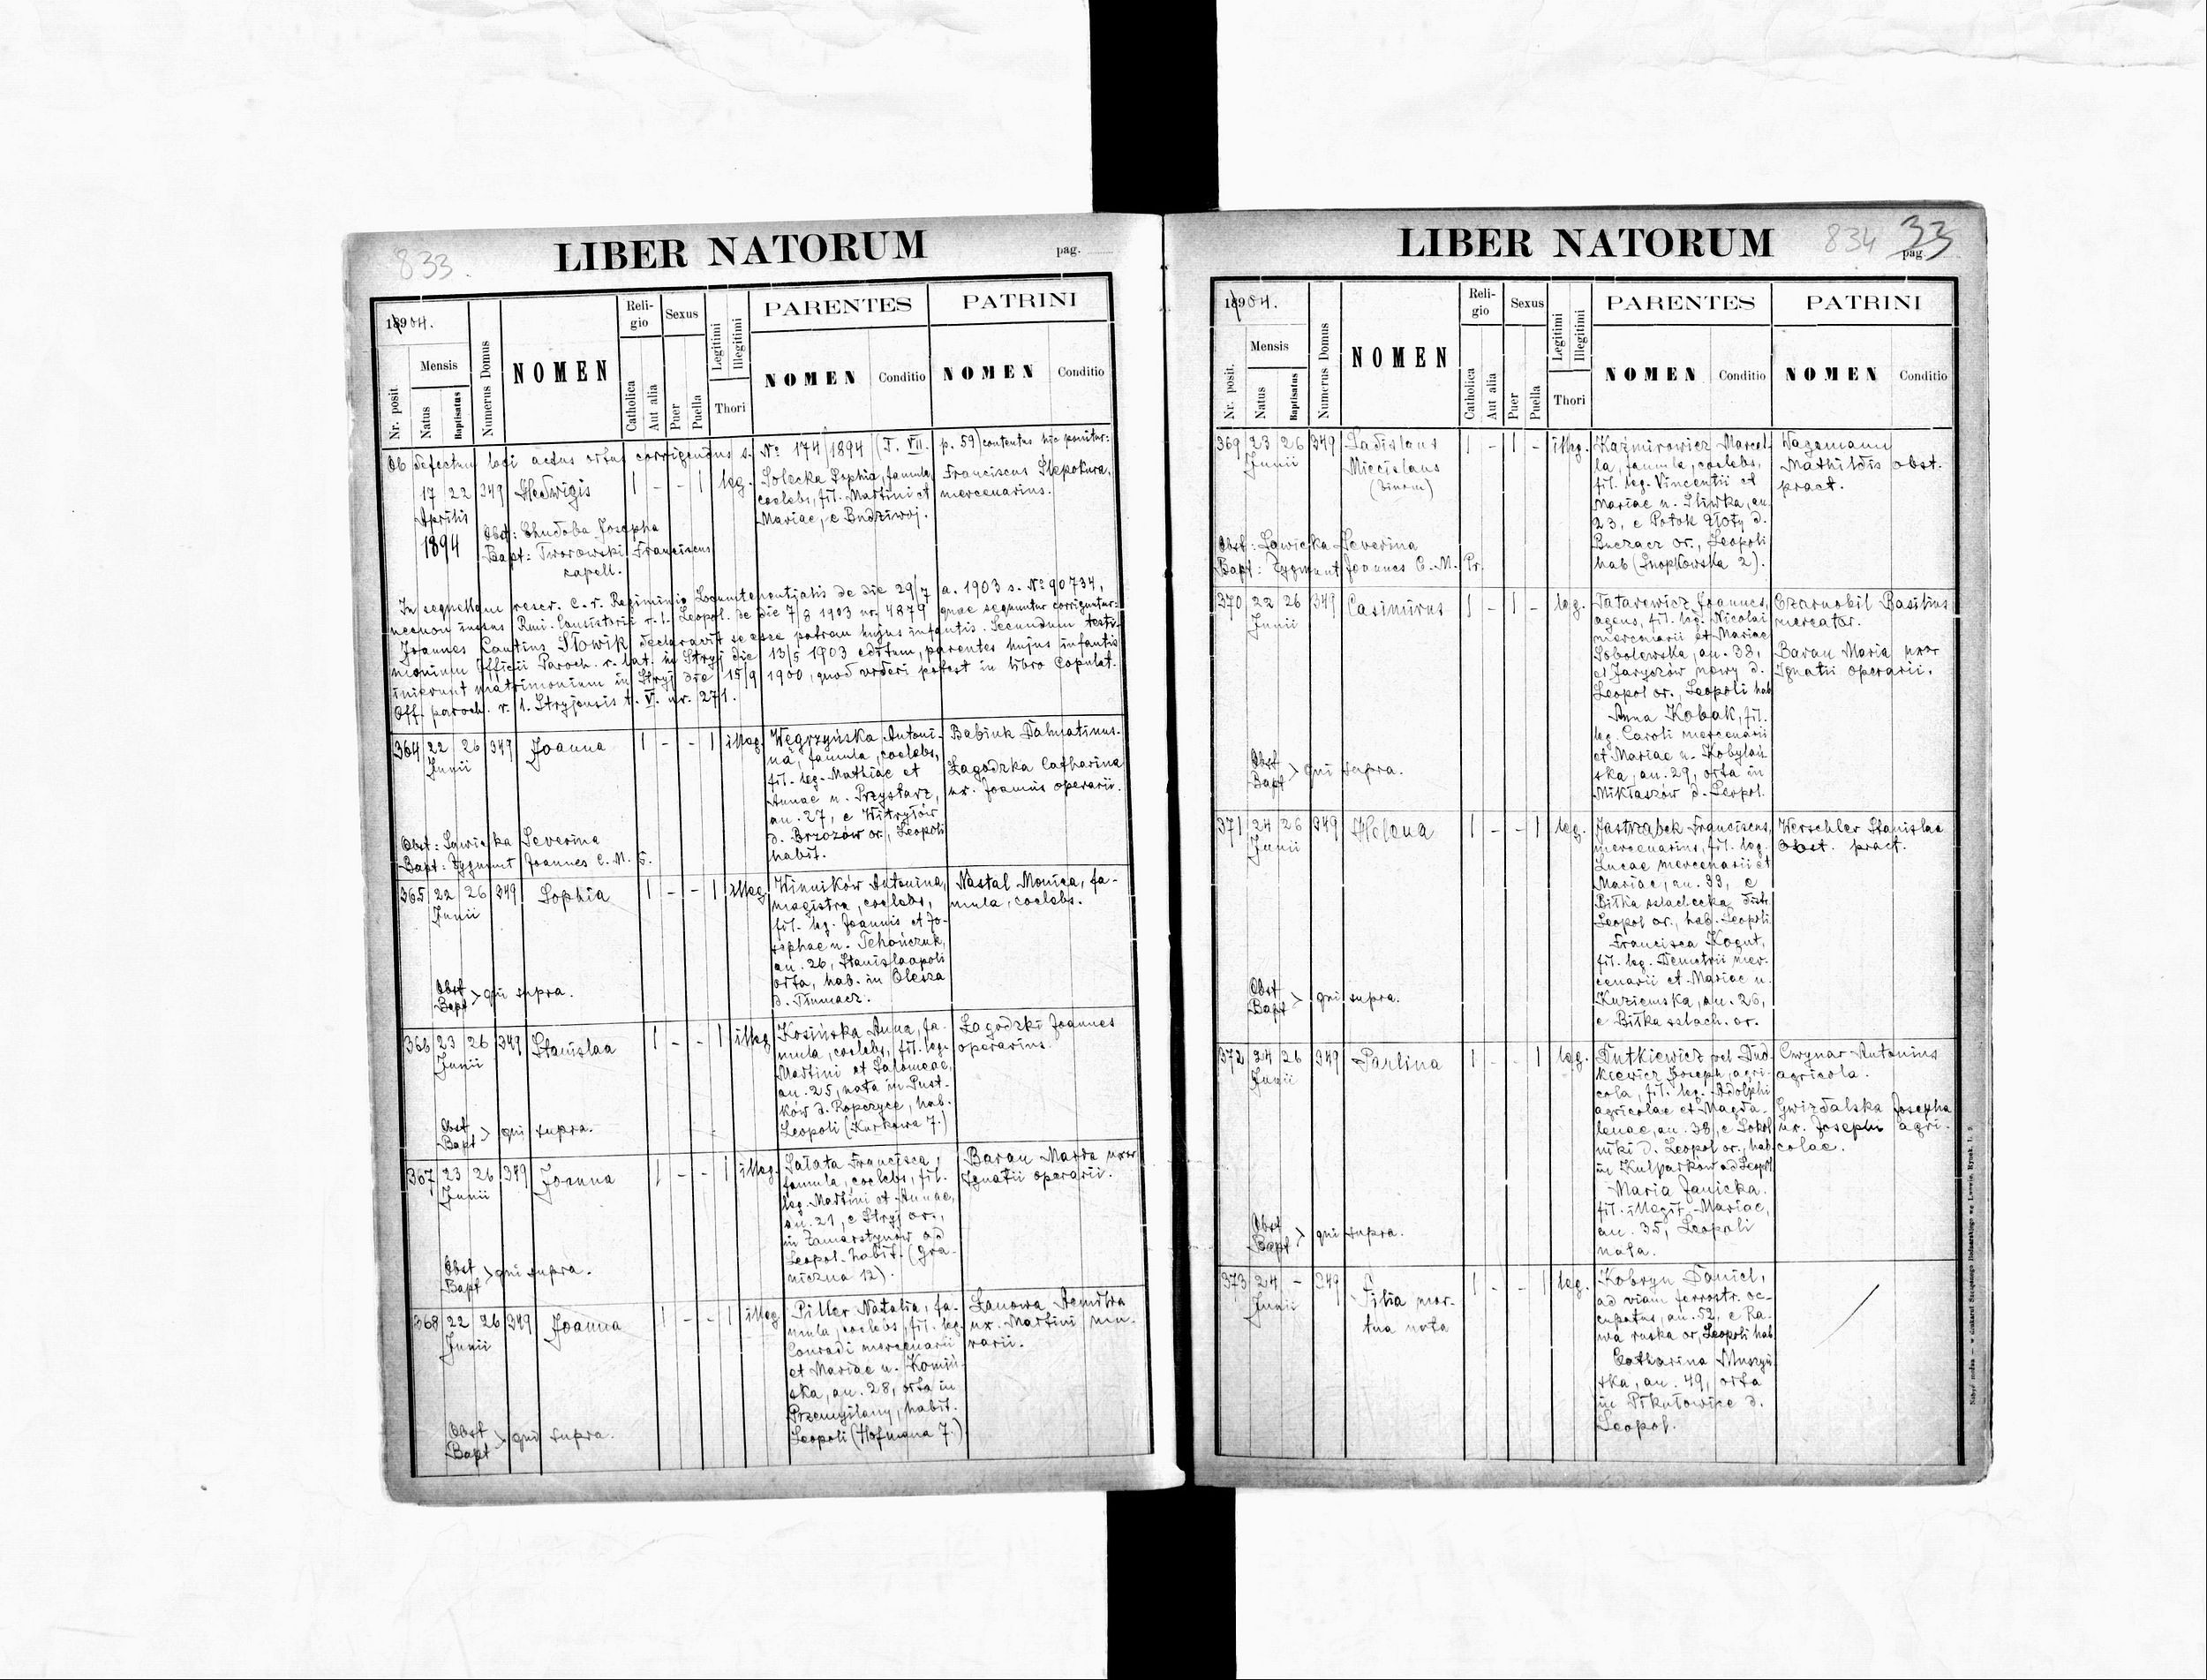 833.
LIBER NATORUM
pag.
1904.
Nr. posit.
Mensis
Natus
Baptisatus
Numerus Domus
NOMEN
Reli-
gio
Catholica
Aut alia
Sexus
Puer
Puella
Legitimi
Illegitimi
Thori
PARENTES
NOMEN
Conditio
PATRINI
NOMEN
Conditio
Ob defectum loci actus ortus corrigendus s. No 174/1894 (T. VII. p. 59) contentus hic ponitur:
17 22 349 Hedwigis 1 - - 1 leg.
Aprilis
1894
Obst: Chudoba Josepha
Bapt: Tworowski Franciscus
capell.
Solecka Sophia, famula,
coelebs, fil. Martini et
Mariae, e Budziwoj.
Franciscus Ślepokura,
mercenarius.
In sequelam rescr. C. r. Regiminis Locumtenentialis de die 29/7 a. 1903 s. No 90734,
necnon iussus Rmi. Consistorii r. l. Leopol. de die 7/8 1903 nr. 4879 quae sequuntur corriguntur:
Joannes Cantius Słowik declaravit se esse patrem hujus infantis. Secundum testi-
monium Officii Paroch. r. lat. in Stryj die 13/5 1903 editum, parentes hujus infantis
inierunt matrimonium in Stryj die 15/9 1900, quod videri potest in libro Copulat.
Off. paroch. r. l. Stryjensis t. VI. nr. 271.
364 22 26 349 Joanna 1 - - 1 illeg.
Junii
Węgrzyńska Antoni-
na, famula, coelebs,
fil. leg. Mathiae et
Annae n. Przystarz,
an. 27, e Witryłów
d. Brzozów or., Leopoli
habit.
Babiuk Dalmatinus.
Łagodzka Catharina
ux. Joannis operarii.
Obst: Sawicka Severina
Bapt: Zygmunt Joannes C. M.
365 22 26 349 Sophia 1 - - 1 illeg.
Junii
Winników Antonina,
magistra, coelebs,
fil. leg. Joannis et Jo-
sephae n. Tehończuk,
an. 26, Stanislaopoli
orta, hab. in Olesza
d. Tłumacz.
Nastal Monica, fa-
mula, coelebs.
Obst
Bapt > qui supra.
366 23 26 349 Stanislaa 1 - - 1 illeg
Junii
Kosińska Anna, fa-
mula, coelebs, fil. leg.
Martini et Salomeae,
an. 25, nata in Pust-
ków d. Ropczyce, hab.
Leopoli (Kurkowa 7.)
Łagodzki Joannes
operarius.
Obst
Bapt > qui supra.
367 23 26 349 Joanna 1 - - 1 illeg.
Junii
Sałata Francisca,
famula, coelebs, fil.
leg. Martini et Annae,
an. 21, e Stryj or.,
in Zamarstynow ad
Leopol. habit. (Gra-
niczna 12).
Baran Maria uxor
Ignatii operarii.
Obst
Bapt > qui supra.
368 22 26 349 Joanna 1 - - 1 illeg
Junii
Piller Natalia, fa-
mula, coelebs, fil. leg.
Conradi mercenarii
et Mariae n. Komiń-
ska, an. 28, orta in
Przemyślany, habit.
Leopoli (Hofmana 7.)
ux. Martini mu-
rarii.
Obst
Bapt > qui supra.
LIBER NATORUM
834 33
pag.
1904.
Nr. posit.
Mensis
Natus
Baptisatus
Numerus Domus
NOMEN
Reli-
gio
Catholica
Aut alia
Sexus
Puer
Puella
Legitimi
Illegitimi
Thori
PARENTES
NOMEN
Conditio
PATRINI
NOMEN
Conditio
369 23 26 349 Ladislaus 1 - 1 - illeg.
Junii
Miecislaus
(binom)
Kaźmirowicz Marcel-
la, famula, coelebs,
fil. leg. Vincentii et
Mariae n. Śliwka, an.
23, e Potok Złoty d.
Buczacz or., Leopoli
hab (Snopkowska 2).
Wagemann
Mathildis obst.
pract.
Obst: Sawicka Severina
Bapt: Zygmunt Joannes C. M. Pr.
370 22 26 349 Casimirus 1 - 1 - leg.
Junii
Tatarewicz Joannes,
agens, fil. leg. Nicolai
mercenarii et Mariae
Sobolewska, an. 38,
e Jaryczów nowy d.
Leopol or., Leopoli hab
Anna Kobak, fil.
leg. Caroli mercenarii
et Mariae n. Kobylań-
ska, an. 29, orta in
Mikłaszów d. Leopol.
Czarnobil Basilius
mercator.
Baran Maria uxor
Ignatii operarii.
Obst
Bapt > qui supra.
371 24 26 349 Helena 1 - - 1 leg.
Junii
Jastrząbek Franciscus,
mercenarius, fil. leg.
Lucae mercenarii et
Mariae, an. 33, e
Biłka szlachecka distr.
Leopol or., hab. Leopoli.
Francisca Kogut,
fil. leg. Demetrii mer-
cenarii et Mariae n.
Kuziemska, an. 26,
e Biłka szlach. or.
Werschler Stanislaa
obst. pract.
Obst
Bapt > qui supra.
372 24 26 349 Paulina 1 - - 1 leg.
Junii
Dutkiewicz vel Dud-
kiewicz Joseph, agri-
cola, fil. leg. Adolphi
agricolae et Magda-
lenae, an. 38, e Sokol
niki d. Leopol or., hab.
in Kulparkow ad Leopol.
Maria Janicka.
fil. illegit. Mariae,
an. 35, Leopoli
nata.
Cwynar Antonius
agricola.
Gwizdalska Josepha
ux. Josephi agri-
colae.
Obst
Bapt > qui supra.
373 24 - 349 Filia mor- 1 - - 1 leg.
Junii
tua nata
Kobryn Daniel,
ad viam ferrostr. oc-
cupatus, an. 52, e Ra-
wa ruska or, Leopoli hab
Catharina Muszyń-
ska, an. 49, orta
in Pikułowice d.
Leopol.